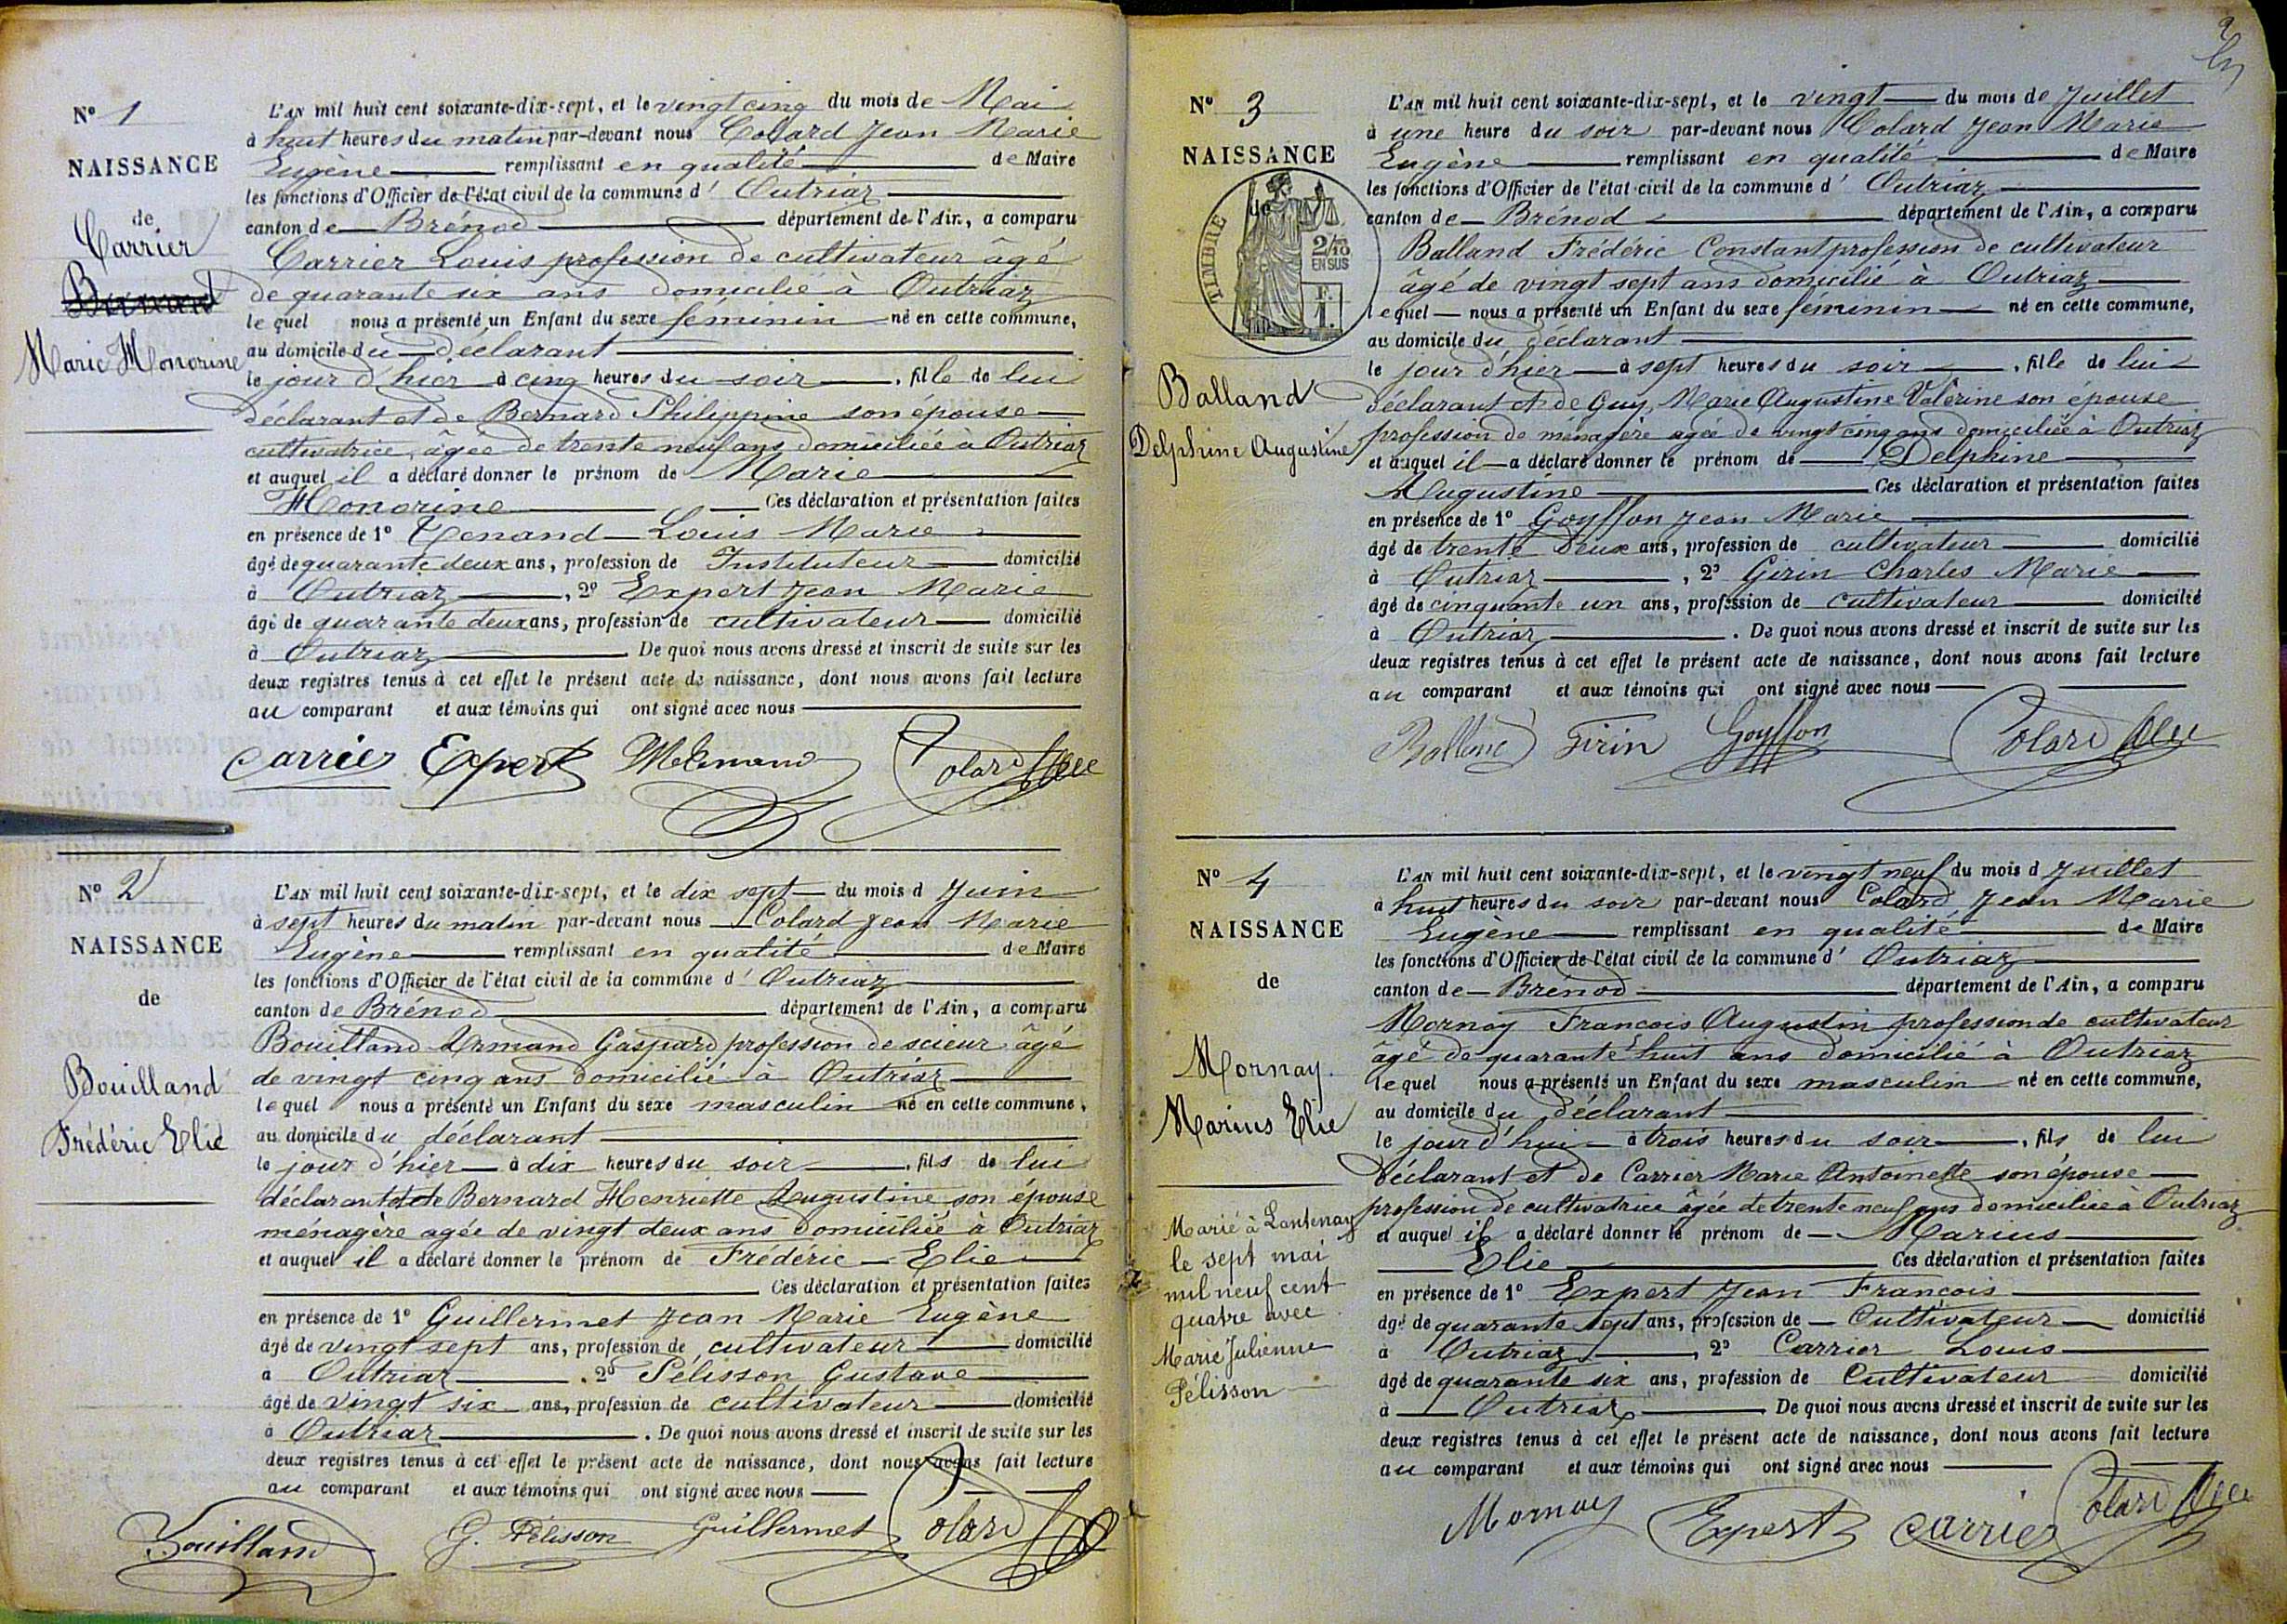 N° 1
NAISSANCE
de
Carrier
Marie Honorine
L'AN mil huit cent soixante-dix-sept, et le vingt cinq du mois de Mai
à huit heures du matin par-devant nous Colard Jean Marie
Eugène remplissant en qualité de Maire
les fonctions d'Officier de l'état civil de la commune d' Outriaz
canton de Brénod département de l'Ain, a comparu
Carrier Louis profession de cultivateur âgé
de quarante six ans domicilié à Outriaz
lequel nous a présenté un Enfant du sexe féminin né en cette commune,
au domicile du déclarant
le jour d'hier à cinq heures du soir, fille de lui
déclarant et de Bernard Philippine son épouse
cultivatrice, âgée de trente neuf ans domiciliée à Outriaz
et auquel il a déclaré donner le prénom de Marie
Honorine Ces déclaration et présentation faites
en présence de 1° Tenand Louis Marie
âgé de quarante deux ans, profession de Instituteur domicilié
à Outriaz, 2° Expert Jean Marie
âgé de quarante deux ans, profession de cultivateur domicilié
à Outriaz De quoi nous avons dressé et inscrit de suite sur les
deux registres tenus à cet effet le présent acte de naissance, dont nous avons fait lecture
au comparant et aux témoins qui ont signé avec nous
Carrier Expert Colard
N° 2
NAISSANCE
de
Bouilland
Frédéric Elie
L'AN mil huit cent soixante-dix-sept, et le dix sept du mois d Juin
à sept heures du matin par-devant nous Colard Jean Marie
Eugène remplissant en qualité de Maire
les fonctions d'Officier de l'état civil de la commune d' Outriaz
canton de Brénod département de l'Ain, a comparu
Bouilland Armand Gaspard profession de scieur âgé
de vingt cinq ans domicilié à Outriaz
lequel nous a présenté un Enfant du sexe masculin né en cette commune,
au domicile du déclarant
le jour d'hier à dix heures du soir, fils de lui
déclarant et de Bernard Henriette Augustine son épouse
ménagère agée de vingt deux ans domiciliée à Outriaz
et auquel il a déclaré donner le prénom de Frédéric Elie
Ces déclaration et présentation faites
en présence de 1° Guillermet Jean Marie Eugène
âgé de vingt sept ans, profession de cultivateur domicilié
à Outriaz, 2° Pélisson Gustave
âgé de vingt six ans, profession de cultivateur domicilié
à Outriaz. De quoi nous avons dressé et inscrit de suite sur les
deux registres tenus à cet effet le présent acte de naissance, dont nous avons fait lecture
au comparant et aux témoins qui ont signé avec nous
Bouilland G. Pélisson Guillermet Colard
2
N° 3
NAISSANCE
de
TIMBRE
2/10
EN SUS
F.
1.
Balland
Delphine Augustine
L'AN mil huit cent soixante-dix-sept, et le vingt du mois de Juillet
à une heure du soir par-devant nous Colard Jean Marie
Eugène remplissant en qualité de Maire
les fonctions d'Officier de l'état civil de la commune d' Outriaz
canton de Brénod département de l'Ain, a comparu
Balland Frédéric Constant profession de cultivateur
âgé de vingt sept ans domicilié à Outriaz
lequel nous a présenté un Enfant du sexe féminin né en cette commune,
au domicile du déclarant
le jour d'hier à sept heures du soir, fille de lui
déclarant et de Guy, Marie Augustine Valérine son épouse
profession de ménagère agée de vingt cinq ans domiciliée à Outriaz
et auquel il a déclaré donner le prénom de Delphine
Augustine Ces déclaration et présentation faites
en présence de 1° Goyffon Jean Marie
âgé de trente deux ans, profession de cultivateur domicilié
à Outriaz, 2° Girin Charles Marie
âgé de cinquante un ans, profession de cultivateur domicilié
à Outriaz. De quoi nous avons dressé et inscrit de suite sur les
deux registres tenus à cet effet le présent acte de naissance, dont nous avons fait lecture
au comparant et aux témoins qui ont signé avec nous
Balland Girin Goyffon Colard
N° 4
NAISSANCE
de
Mornay
Marius Elie
Marié à Lantenay
le sept mai
mil neuf cent
quatre avec
Marie Julienne
Pélisson
L'AN mil huit cent soixante-dix-sept, et le vingt neuf du mois d Juillet
à huit heures du soir par-devant nous Colard Jean Marie
Eugène remplissant en qualité de Maire
les fonctions d'Officier de l'état civil de la commune d' Outriaz
canton de Brénod département de l'Ain, a comparu
Mornay Francois Augustin profession de cultivateur
âgé de quarante huit ans domicilié à Outriaz
lequel nous a présenté un Enfant du sexe masculin né en cette commune,
au domicile du déclarant
le jour d'hui à trois heures du soir, fils de lui
déclarant et de Carrier Marie Antoinette son épouse
profession de cultivatrice âgée de trente neuf ans domiciliée à Outriaz
et auquel il a déclaré donner le prénom de Marius
Elie Ces déclaration et présentation faites
en présence de 1° Expert Jean Francois
âgé de quarante sept ans, profession de Cultivateur domicilié
à Outriaz, 2° Carrier Louis
âgé de quarante six ans, profession de Cultivateur domicilié
à Outriaz De quoi nous avons dressé et inscrit de suite sur les
deux registres tenus à cet effet le présent acte de naissance, dont nous avons fait lecture
au comparant et aux témoins qui ont signé avec nous
Mornay Expert Carrier Colard